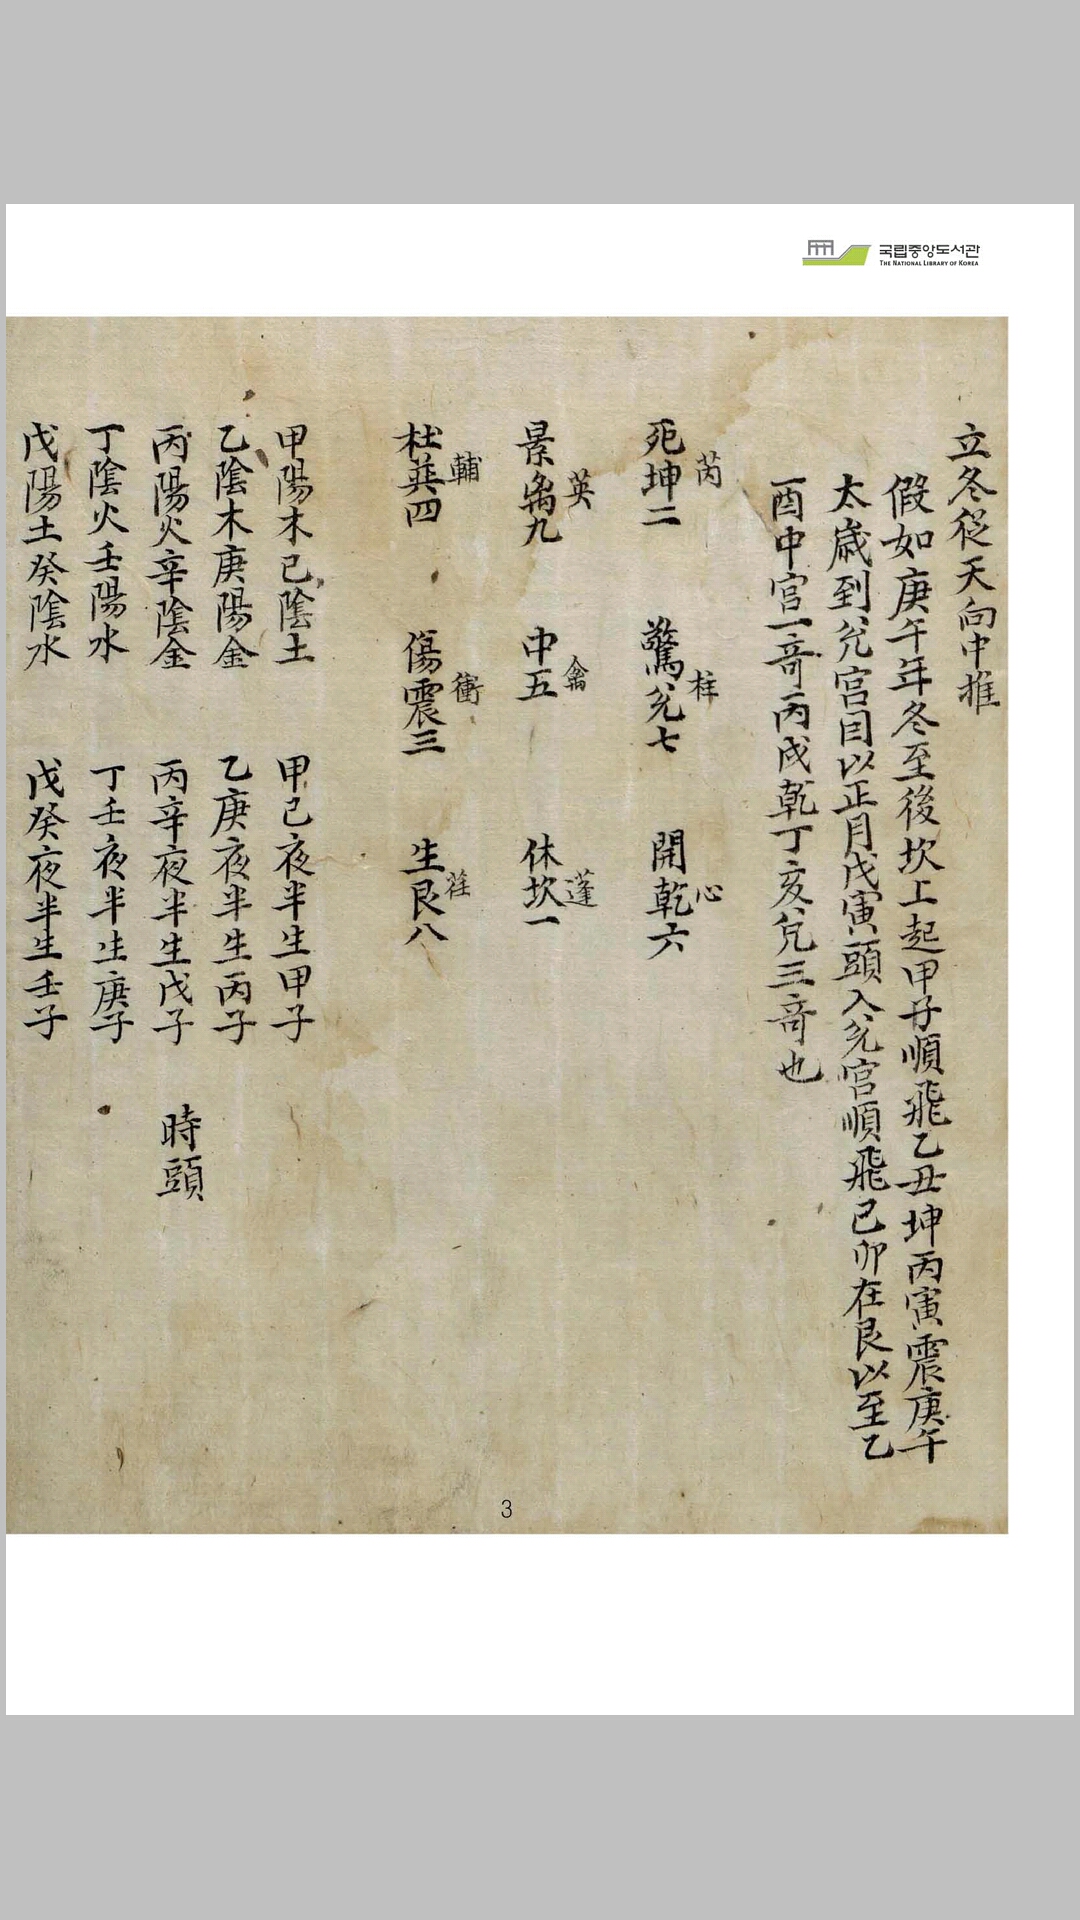 국립중앙도서관
THE NATIONAL LIBRARY OF KOREA
立冬從天向中推
假如庚午年冬至後坎上起甲子順飛乙丑坤丙寅震庚午
太歲到兌宮因以正月戊寅頭入兌宮順飛己卯在艮以至乙
酉中宮一竒丙戌乾丁亥兌三竒也
芮
死坤二
柱
驚兌七
心
開乾六
英
景离九
禽
中五
蓬
休坎一
輔
杜巽四
衝
傷震三
任
生艮八
甲陽木己陰土 甲己夜半生甲子
乙陰木庚陽金 乙庚夜半生丙子
丙陽火辛陰金 丙辛夜半生戊子 時頭
丁陰火壬陽水 丁壬夜半生庚子
戊陽土癸陰水 戊癸夜半生壬子
3